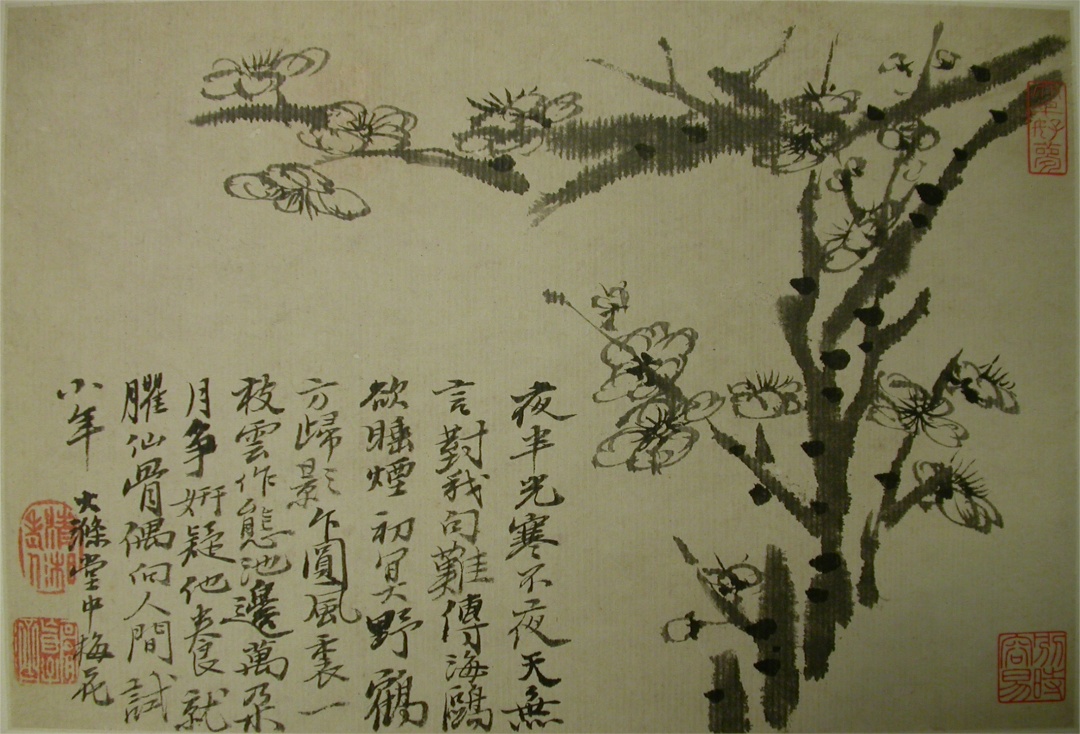 夜半光寒不夜天無
言對我句難傳海鷗
欲睡煙初冥野鶴
方歸影乍圓風裊一
枝雲作態池邊萬朵
月爭妍疑他養就
臞仙骨偶向人間試
小年
大滌堂中梅花
別時容易